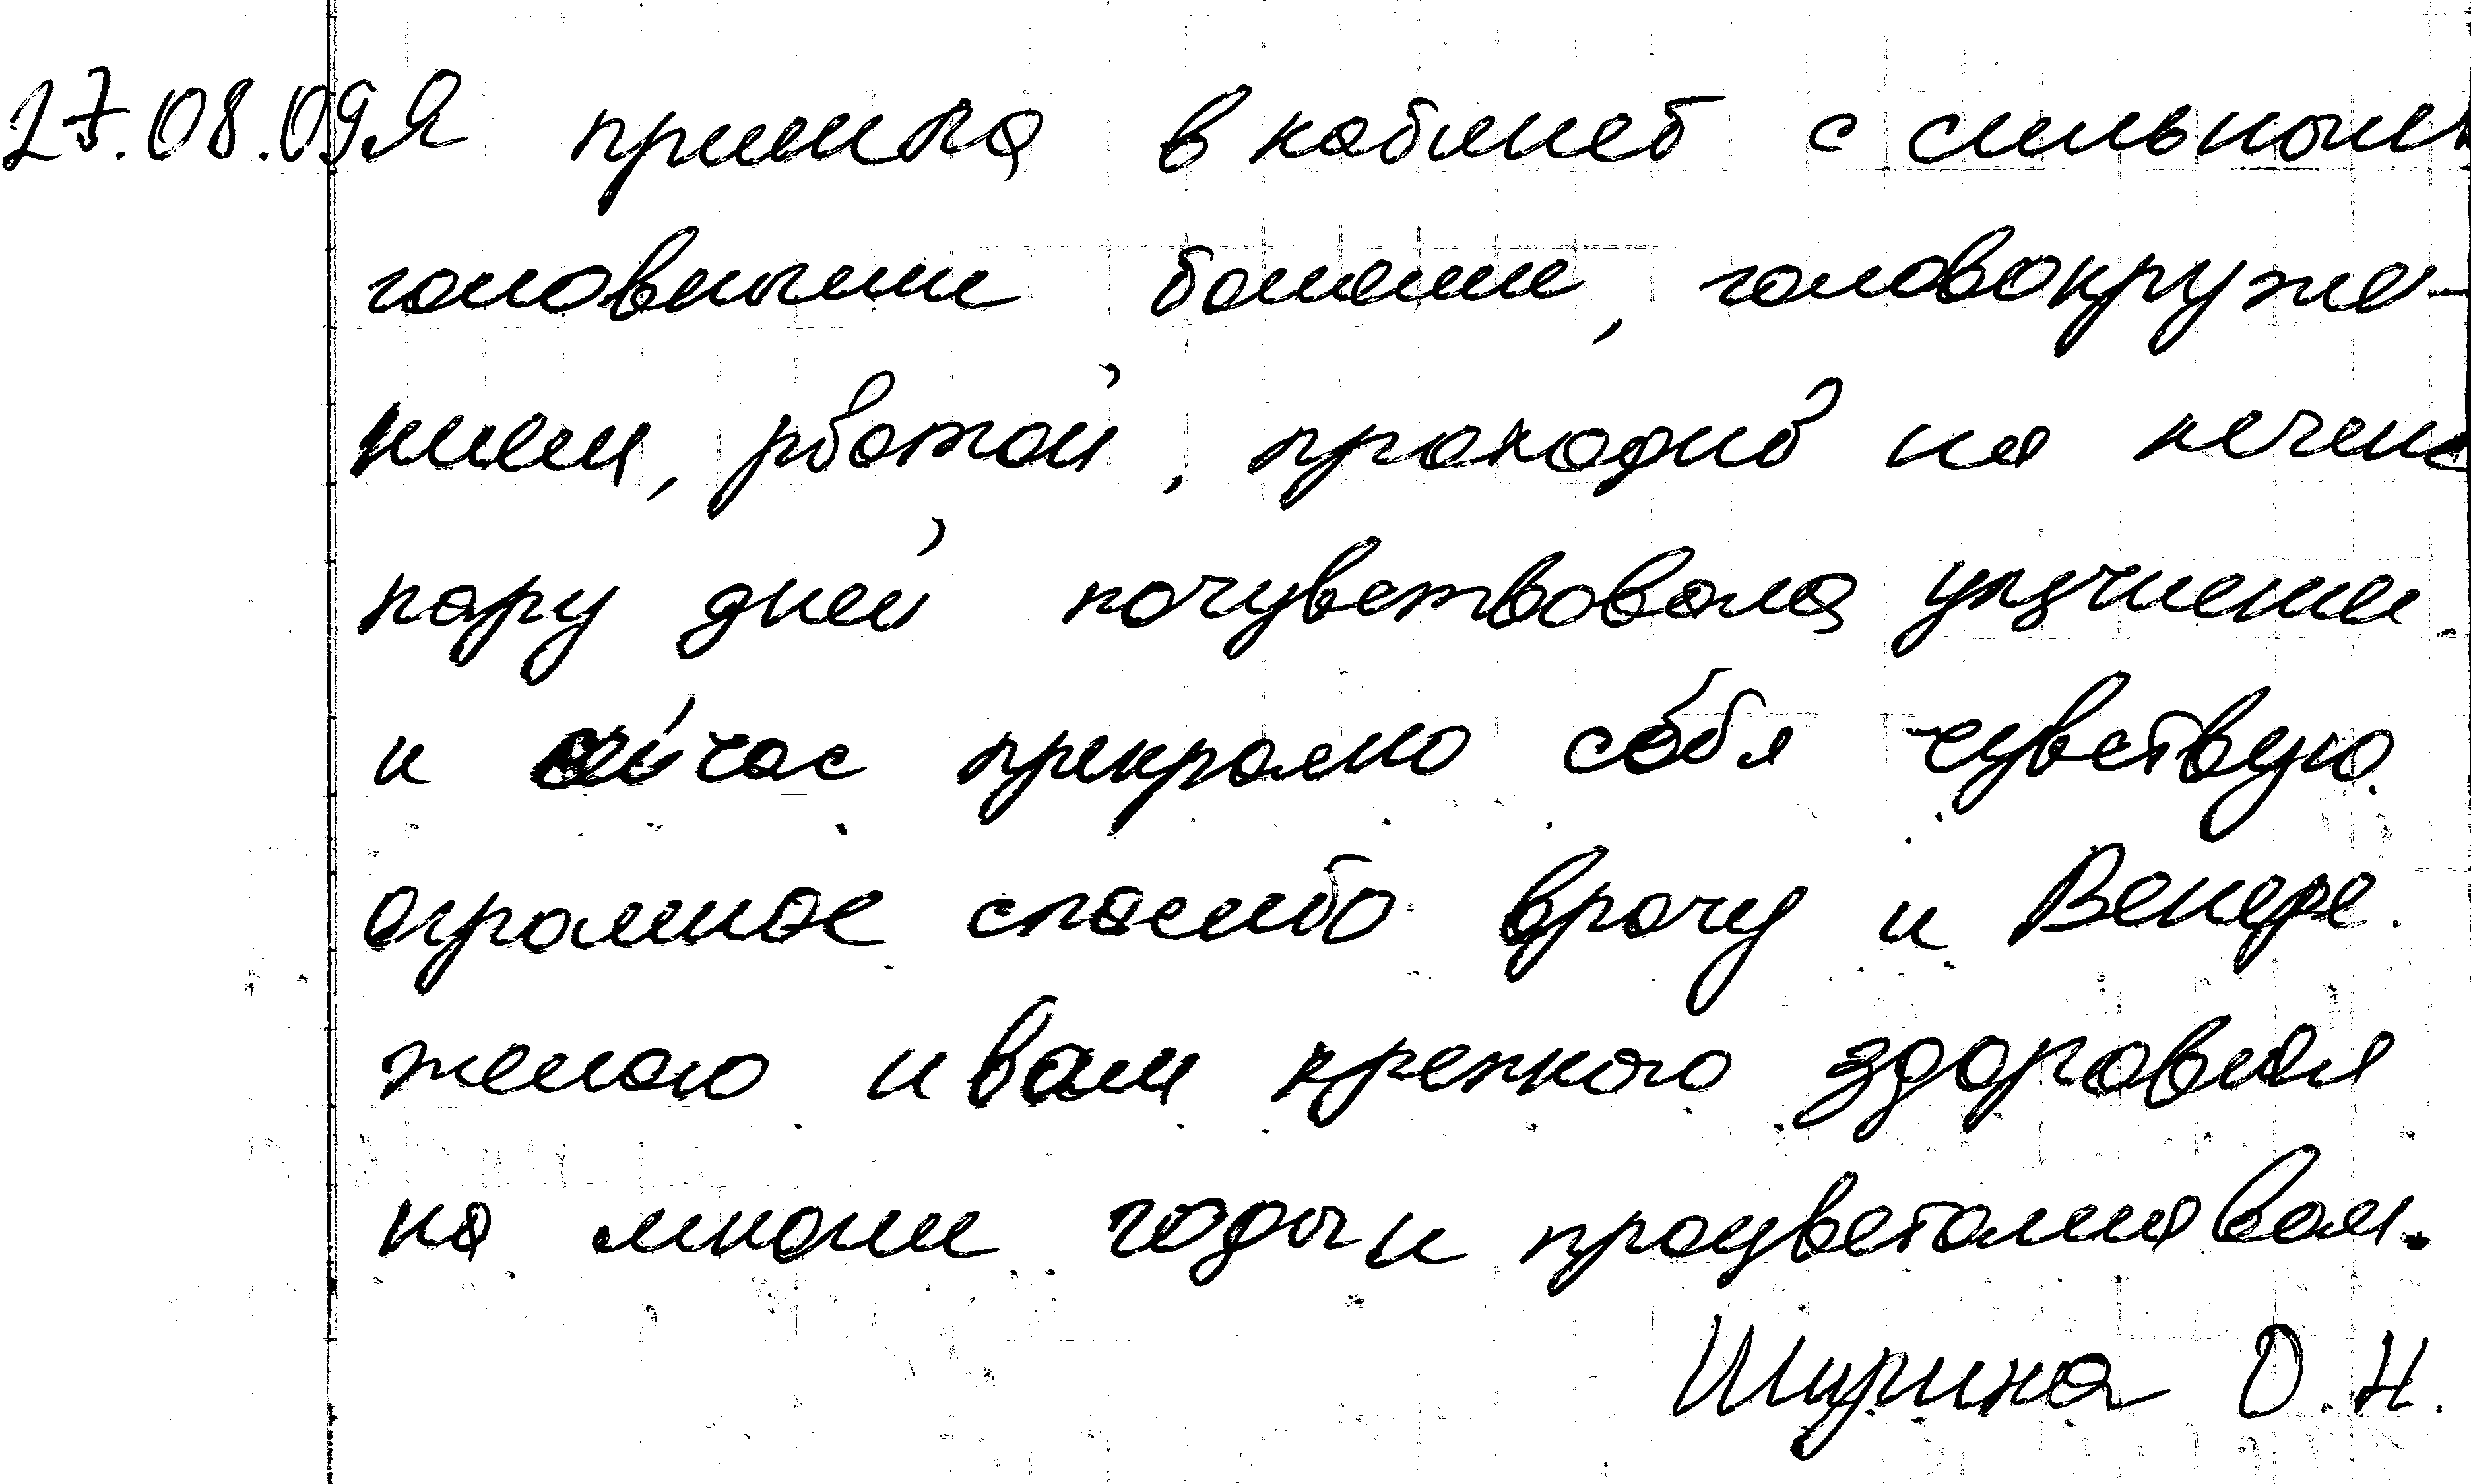 27.08.09 Я пришла в кабинет с сильными
головными болями, головокруже-
нием, рвотой, проходив на лечение
пару дней почувствовала улучшение
и сейчас прекрасно себя чувствую
огромное спасибо врачу и Венере.
желаю и вам крепкого здоровья
на многие годы и процветания вам.
Шурина О.Н.